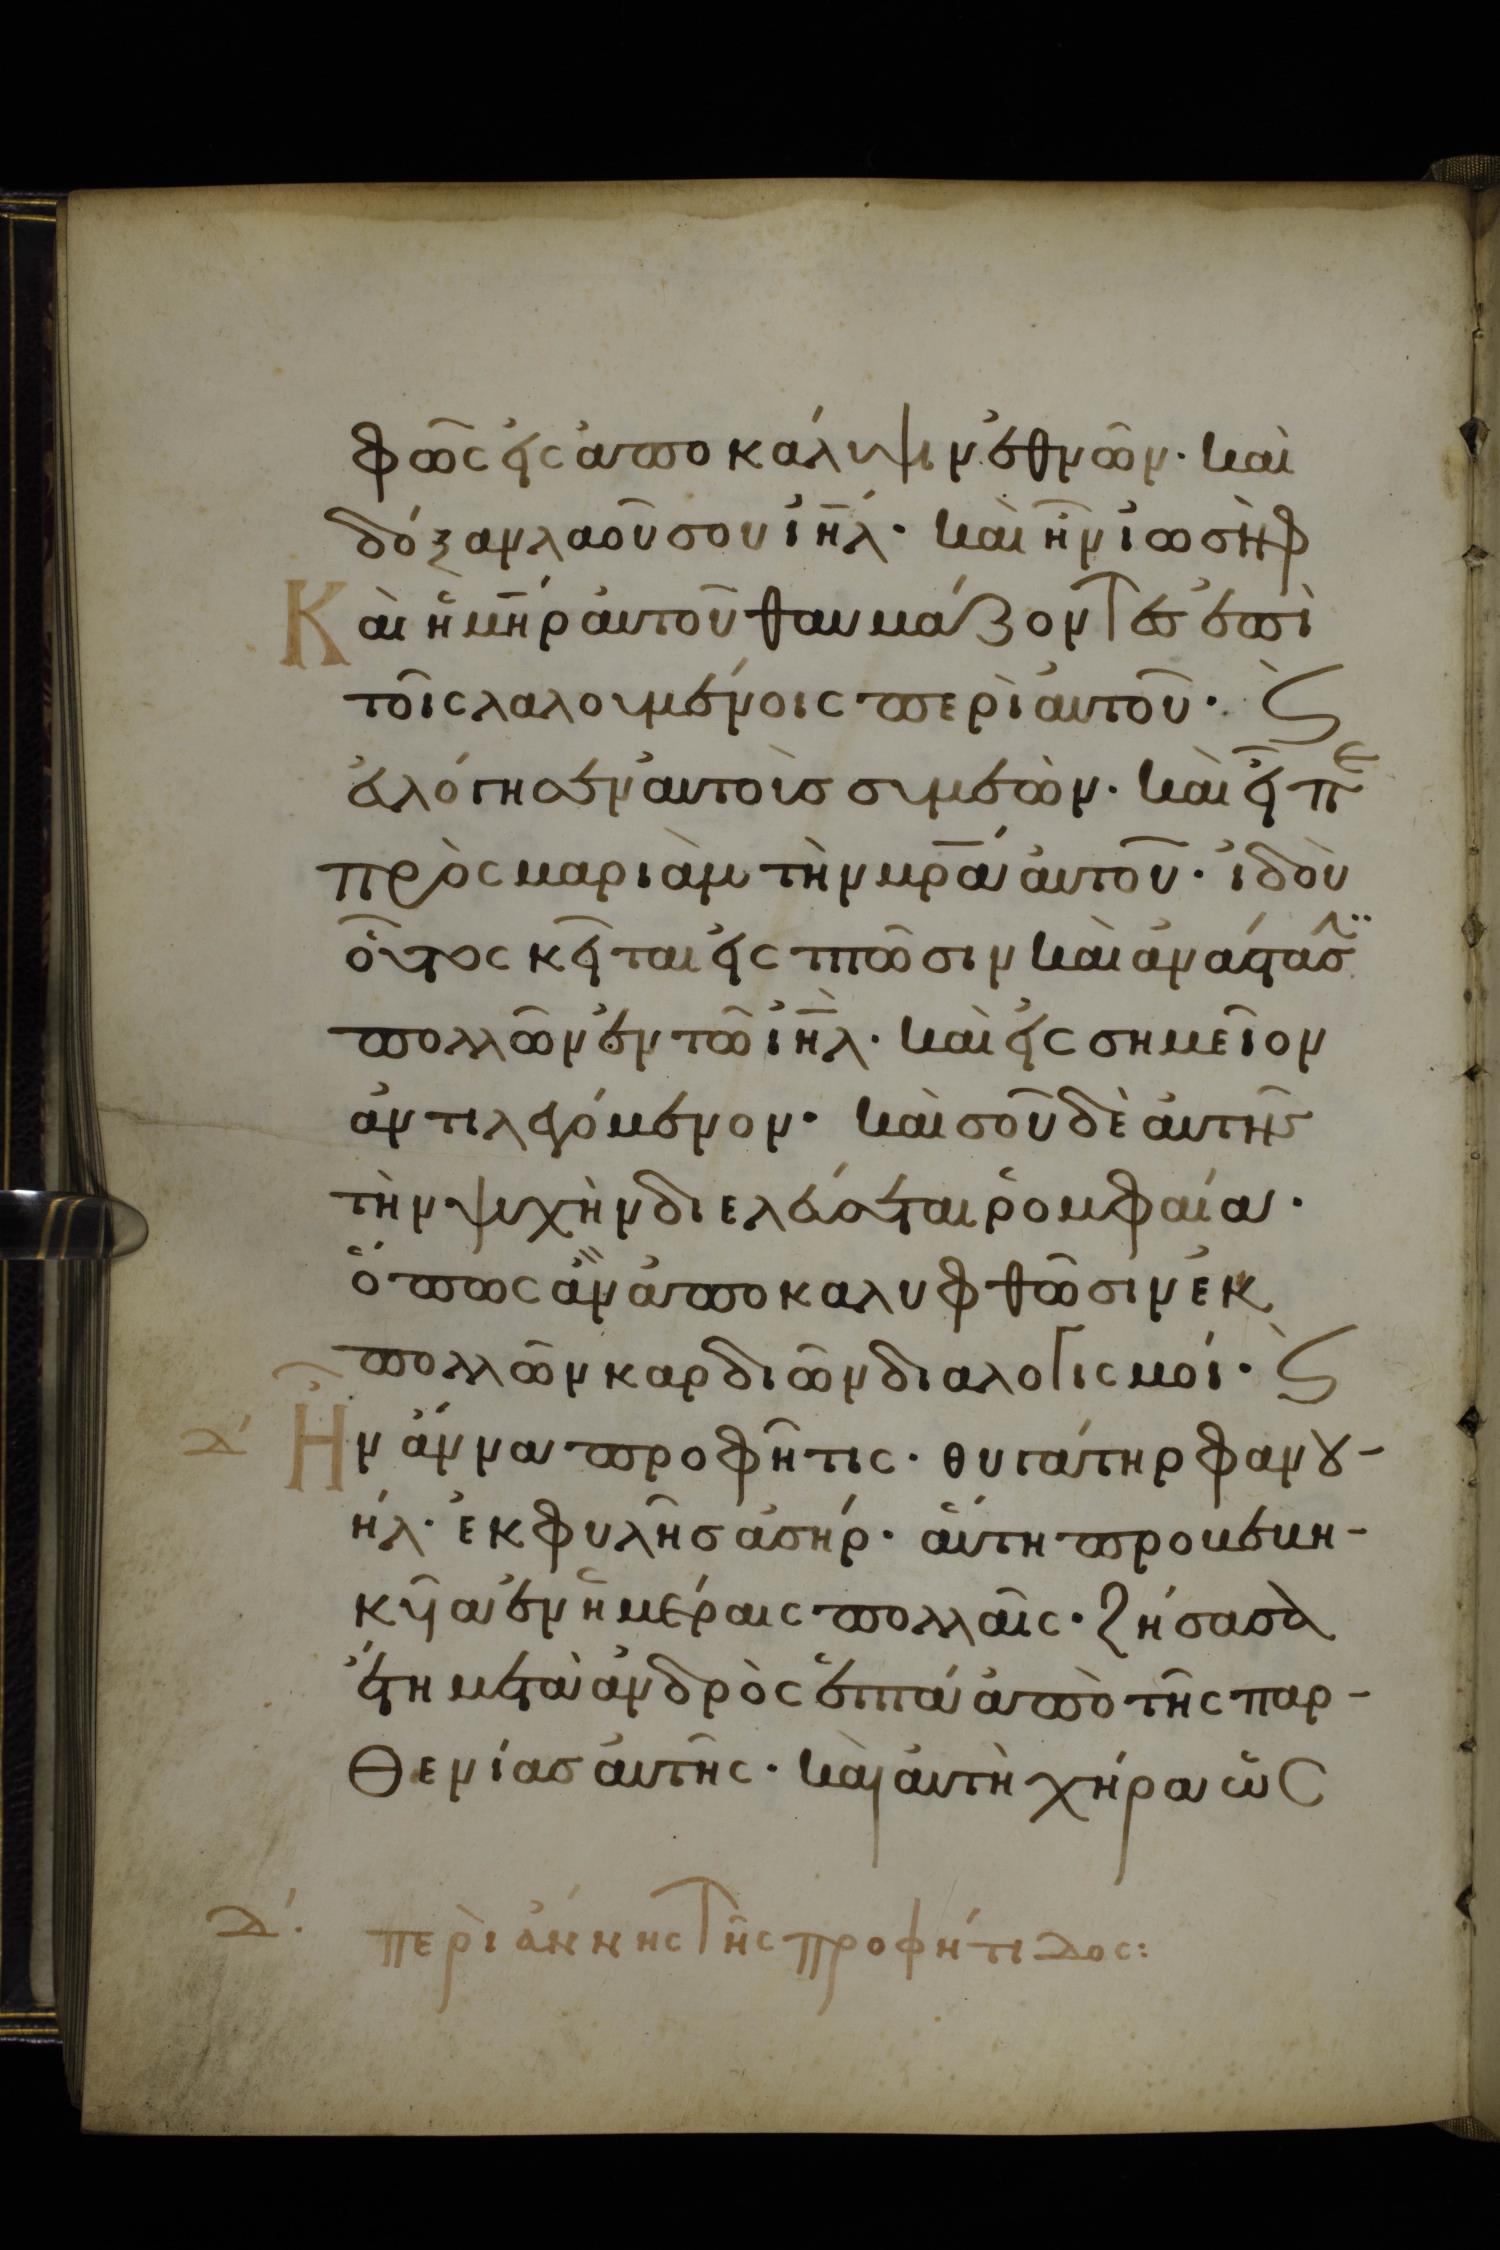 φῶς εἰς ἀποκάλυψιν ἐθνῶν· καὶ
δόξαν λαοῦ σου ἰη̅λ· καὶ ἦν ἰωσὴφ
Καὶ ἡ μη̅ρ αὐτοῦ θαυμάζοντες ἐπὶ
τοῖς λαλουμένοις περὶ αὐτοῦ· ϛ
ἐυλόγησεν αὐτοὺς συμεὼν· καὶ εἶπε
πρὸς μαριὰμ τὴν μρ̅α αὐτοῦ· ἰδοὺ
οὗτος κεῖται εἰς πτῶσιν καὶ ἀνάστασ
πολλῶν ἐν τῶ ἰη̅λ· καὶ εἰς σημεῖον
ἀντιλεγόμενον· καὶ σοῦ δὲ αὐτῆς
τὴν ψυχὴν διελεύσεται ῥομφαία·
ὅπως ἂν ἀποκαλυφθῶσιν ἐκ
πολλῶν καρδιῶν διαλογισμοί· ϛ
δ´ Ἦν ἄννα προφῆτις· θυγάτηρ φανου-
ήλ· ἐκ φυλῆς ἀσήρ· αὕτη προβεβη-
κυῖα ἐν ἡμέραις πολλαῖς· ζήσασα
ἔτη μετὰ ἀνδρὸς ἑπτὰ ἀπὸ τῆς παρ-
θενίας αὐτῆς· καὶ αὐτὴ χήρα ὡς
δ´. περὶ ἄννης τῆς προφήτιδος: